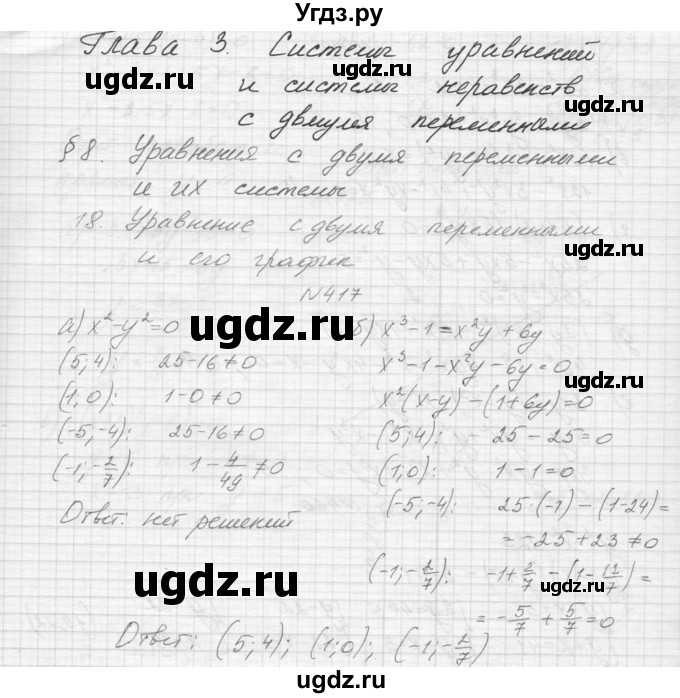 Угдз.ру
Глава 3. Системы уравнений
и системы неравенств
с двумя переменными
§8. Уравнения с двумя переменными
и их системы
18. Уравнение с двумя переменными
и его график
N417
а) x²-y²=0
(5; 4): 25-16≠0
(1; 0): 1-0≠0
(-5; -4): 25-16≠0
(-1; -2/7): 1-4/49≠0
Ответ: нет решений
б) x³-1=x²y+6y
x³-1-x²y-6y=0
x²(x-y)-(1+6y)=0
(5; 4): 25-25=0
(1; 0): 1-1=0
(-5; -4): 25·(-1)-(1-24)=
=-25+23≠0
(-1; -2/7): -1+2/7-(1-12/7)=
=-5/7+5/7=0
Ответ: (5; 4); (1; 0); (-1; -2/7)
ugdz.ru
ugdz.ru
ugdz.ru
ugdz.ru
ugdz.ru
ugdz.ru
ugdz.ru
ugdz.ru